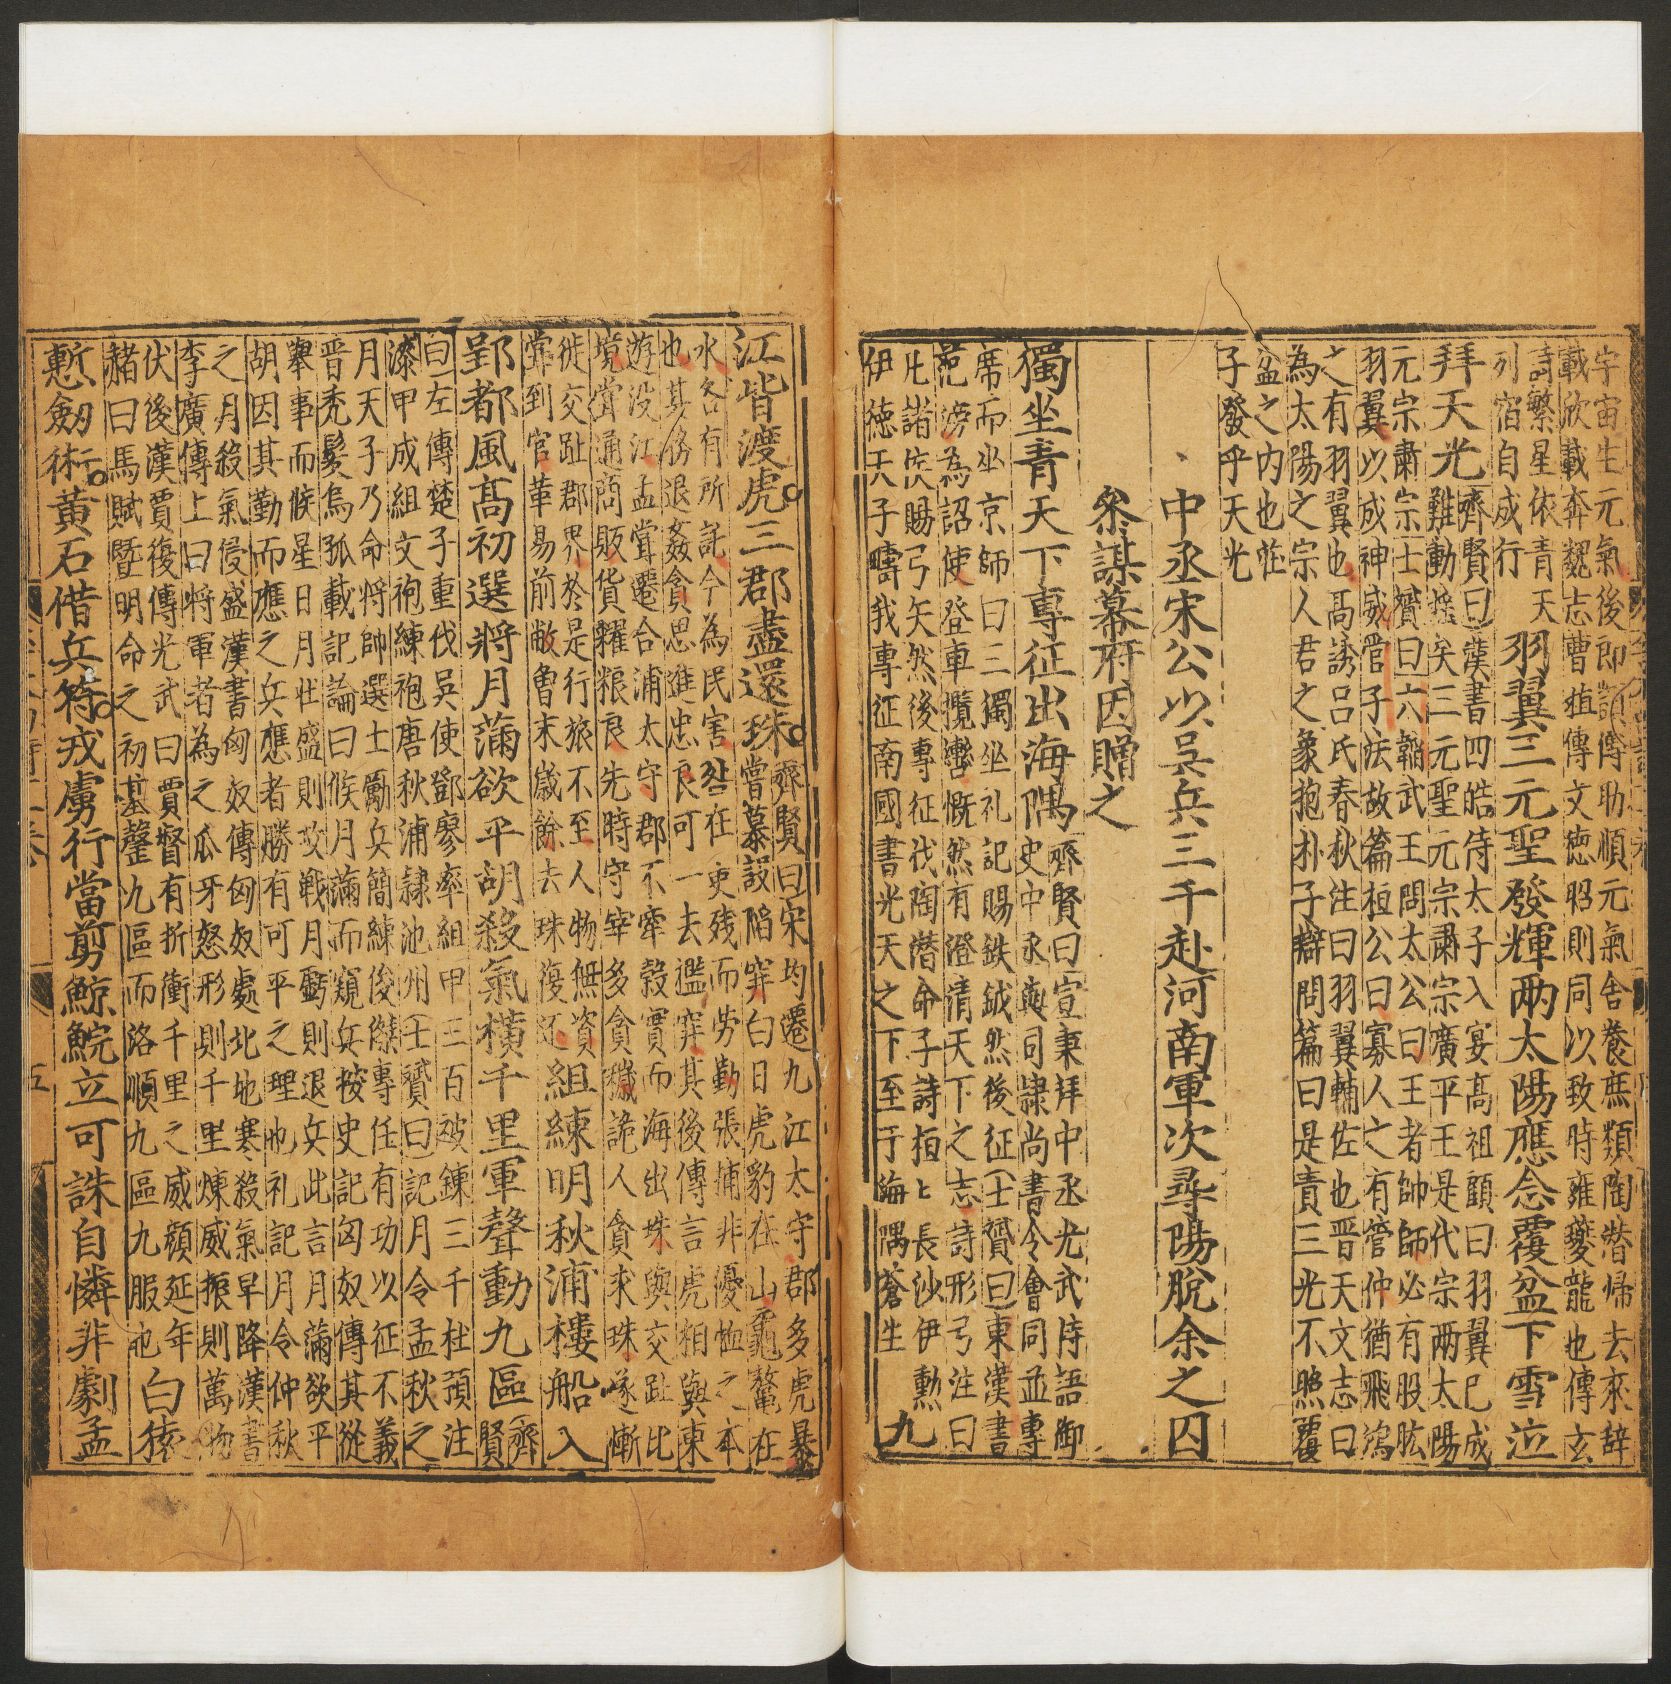 宇宙生元氣後即顗傳助順元氣舍養庶類陶潛歸去來辭
載欣載奔魏志曹植傳文德昭則同以致時雍夔龍也傳玄
詩繁星依青天
列宿自成行
羽翼三元聖發輝兩太陽應念覆盆下雪泣
拜天光
齊賢曰漢書四皓侍太子入宴高祖顧曰羽翼已成
難動搖矣三元聖元宗肅宗廣平王是代宗兩太陽
元宗肅宗士贇曰六韜武王問太公曰王者帥師必有股肱
羽翼以成神威管子法故篇桓公曰寡人之有管仲猶飛鴻
之有羽翼也高誘呂氏春秋注曰羽翼輔佐也晋天文志曰
為太陽之宗人君之象抱朴子辯問篇曰是責三光不照覆
盆之内也莊
子發乎天光
中丞宋公以吴兵三千赴河南軍次尋陽脫余之囚
叅謀幕府因贈之
獨坐青天下專征出海隅
齊賢曰宣秉拜中丞光武特語御
史中丞與司隸尚書令會同並專
席而坐京師曰三獨坐礼記賜鈇鉞然後征士贇曰東漢書
范滂為詔使登車攬轡慨然有澄清天下之志詩形弓注曰
凡諸侯賜弓矢然後專征伐陶潛命子詩桓桓長沙伊勲
伊德天子疇我專征南國書光天之下至于海隅蒼生
九
江皆渡虎三郡盡還珠
齊賢曰宋均遷九江太守郡多虎暴
嘗募設陷穽白曰虎豹在山黿鼉在
水各有所託今為民害咎在吏残而勞勤張捕非憂恤之本
也其務退姦貪思進忠良可一去濫穽其後傳言虎相與東
遊没江孟嘗遷合浦太守郡不産穀實而海出珠與交趾比
境嘗通商販貨糴粮食先時守宰多貪穢詭人貪求珠遂慚
徙交趾郡界於是行旅不至人物無資
嘗到官革易前敝曾未歲餘去珠復还
組練明秋浦樓船入
郢都風髙初選將月滿欲平胡殺氣横千里軍聲動九區
齊賢
曰左傳楚子重伐吴使鄧廖率組甲三百被鍊三千杜預注
漆甲成組文袍練袍唐秋浦隸池州士贇曰記月令孟秋之
月天子乃命將帥選士勵兵簡練後傑專任有功以征不義
晋秃髪烏孤載記論曰候月滿而窺兵按史記匈奴傳其從
擧事而候星日月壯盛則攻戦月虧則退兵此言月滿欲平
胡因其勤而應之兵應者勝有可平之理也礼記月令仲秋
之月殺氣侵盛漢書匈奴傳匈奴處北地寒殺氣早降漢書
李廣傳上曰將軍者為之瓜牙怒形則千里煉威振則萬物
伏後漢賈復傳光武曰賈督有折衝千里之威顔延年
赭曰馬賦暨明命之初基罄九區而洛順九區九服也
白猿
慙劒術黄石借兵符戎虜行當剪鯨鯢立可誅自憐非劇孟